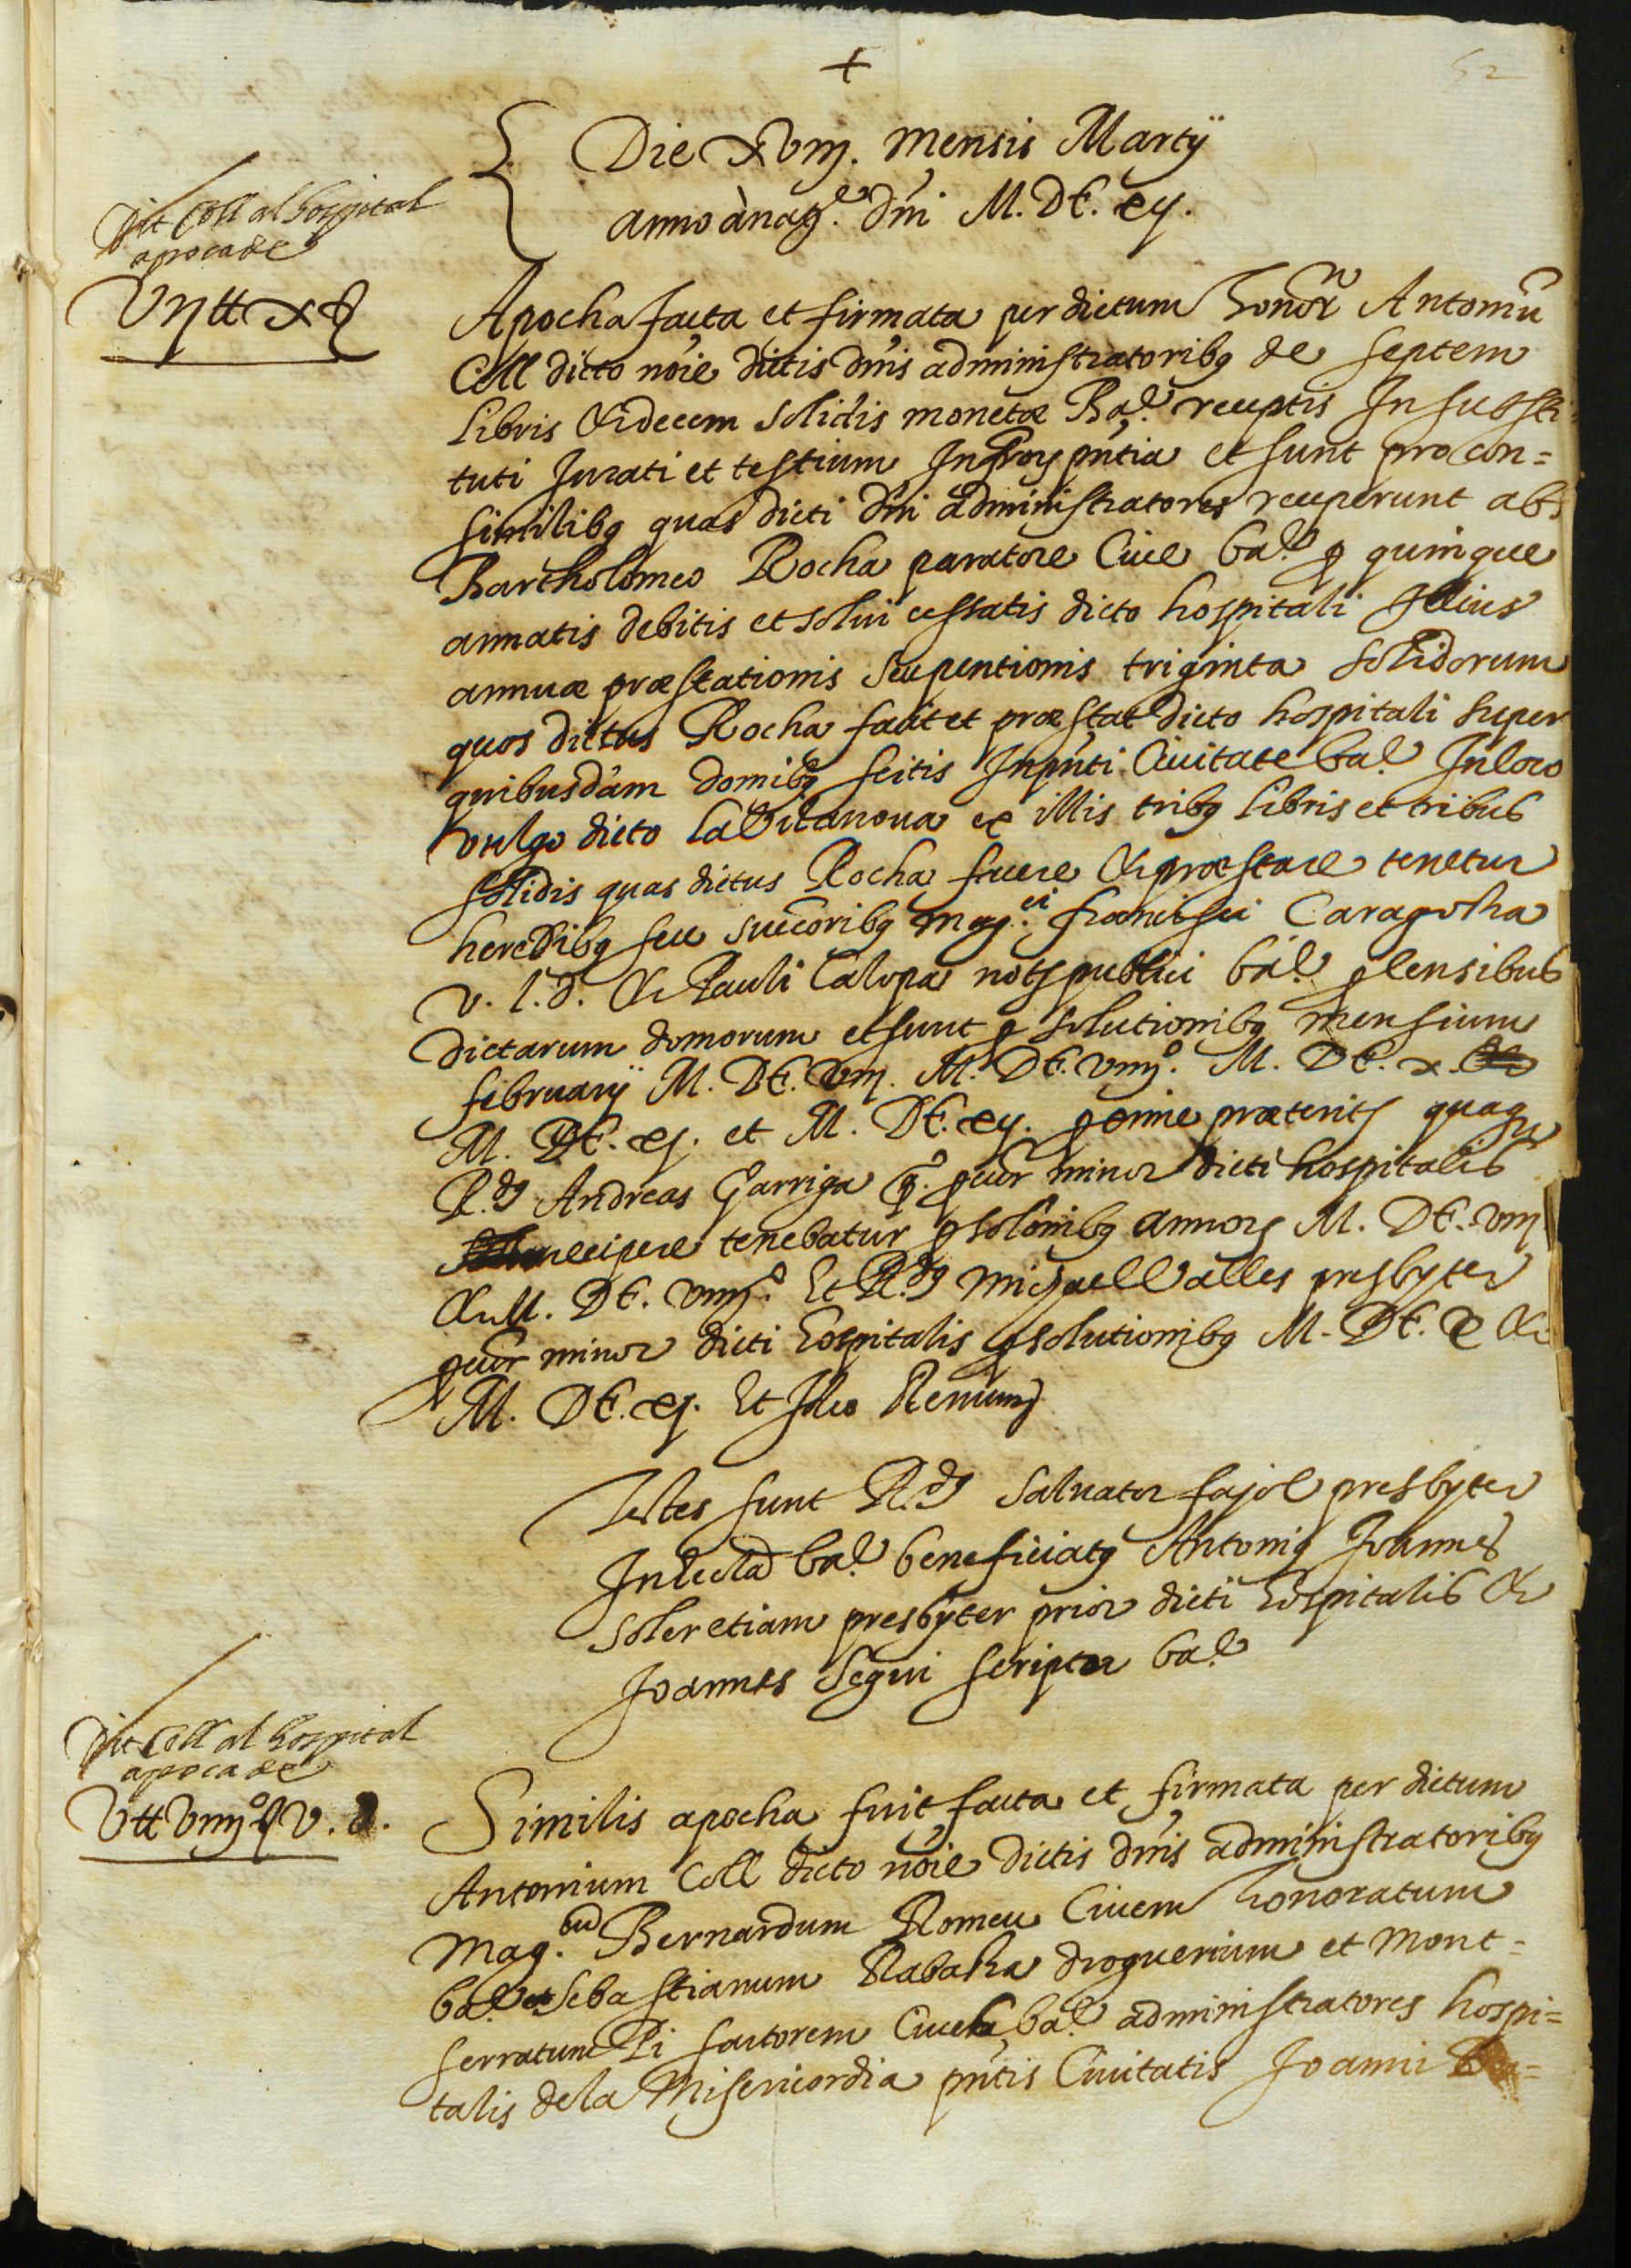 +
52
Die xviij. mensis Martij
anno à nat.e dñi M. DC. xij.
dit Coll al hospital
apoca de
vij ll x ß
Apocha facta et firmata per dictum honor. Antoniũ
Coll dicto nõie dictis dñis administratoribq de septem
libris & decem solidis monetæ Bal. receptis In substi=
tuti Jurati et testium Infrõrs pñtia et sunt pro con=
similibq quas dicti dñi administratores receperunt ab
Bartholomeo Rocha paratore Cive bal. p quinque
annatis debitis et solui cessatis dicto hospitali illius
annuæ præstationis seu pentionis triginta solidorum
quos dictus Rocha facit et præstat dicto hospitali super
quibusdam domibq scitis In pñti Civitate bal. In loco
vulgo dicto la Vilanova ex illis tribq libris et tribus
solidis quas dictus Rocha facere & præstare tenetur
heredibq seu succõribq mag.ci francisci Caragossa
v. l. d. & Pauli Calopa nots publici bal. p censibus
dictarum domorum et sunt p solutionibq mensium
februarij M. DC. viij. M. DC. viiij.o M. DC. x. &
M. DC. xj. et M. DC. xij. p omne præterits quaqz
R.dq Andreas Garriga q.o pcũr minor dicti hospitalis
recipere tenebatur p solõnibq annors M. DC. viij
& M. DC. viiij.o Et R.dq Michael Valles presbyter
pcũr minor dicti hospitalis p solutionibq M. DC. x &
M. DC. xj. Et Ideo Renuns
Testes sunt R.dq Salvator fajol presbyter
In eccla bal. beneficiatq Antoniq Joannes
Soler etiam presbyter prior dicti hospitalis &
Joannes Segui scriptor bal.
dit Coll al hospital
apoca de
v ll viiij.o ß v. d.
Similis apocha fuit facta et firmata per dictum
Antonium Coll dicto nõie dictis dñis administratoribq
Mag.cũ Bernardum Romeu Civem honoratum
bal. et Sebastianum Rabassa droguerium et Mont=
serratum Pi sartorem Cives bal. administratores hospi=
talis de la Misericordia pñtis Civitatis Joanni